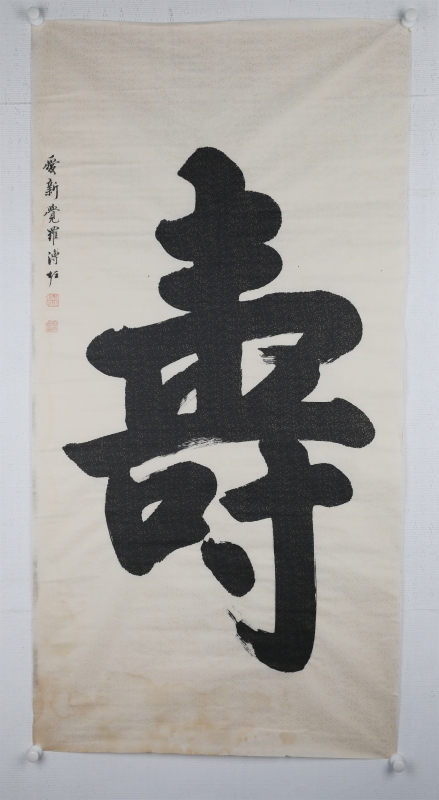 壽
愛新覺羅溥任